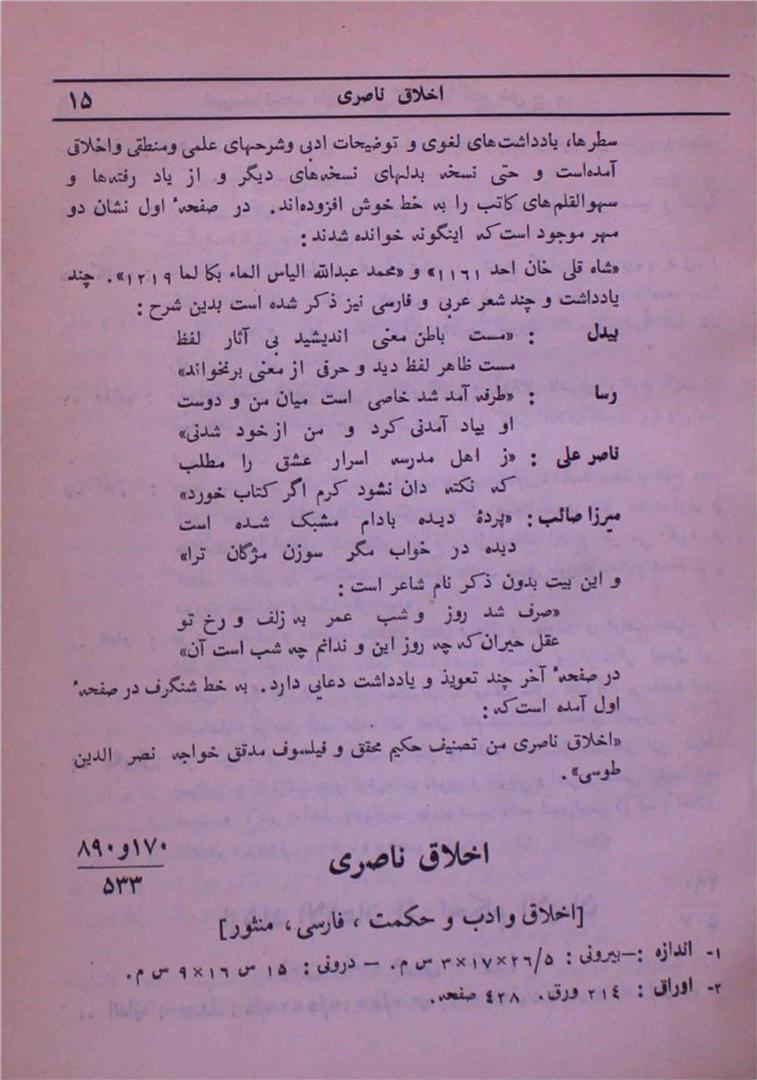 اخلاق ناصری ۱۵
سطرها، یادداشت‌های لغوی و توضیحات ادبی وشرحهای علمی ومنطقی واخلاقی
آمده‌است و حتی نسخه بدلهای نسخه‌های دیگر و از یاد رفته‌ها و
سهوالقلم‌های کاتب را به خط خوش افزوده‌اند. در صفحهٔ اول نشان دو
مهر موجود است که اینگونه خوانده شدند:
«شاه قلی خان احد ۱۱۶۱» و «محمد عبدالله الیاس الماء بکا لما ۱۲۱۹». چند
یادداشت و چند شعر عربی و فارسی نیز ذکر شده است بدین شرح:
بیدل : «مست باطن معنی اندیشید بی آثار لفظ
مست ظاهر لفظ دید و حرفی از معنی برنخواند»
رسا : «طرفه آمد شد خاصی است میان من و دوست
او بیاد آمدنی کرد و من از خود شدنی»
ناصر علی : «ز اهل مدرسه اسرار عشق را مطلب
که نکته دان نشود کرم اگر کتاب خورد»
میرزا صائب : «پردهٔ دیده بادام مشبک شده است
دیده در خواب مگر سوزن مژگان ترا»
و این بیت بدون ذکر نام شاعر است:
«صرف شد روز و شب عمر به زلف و رخ تو
عقل حیران که چه روز این و ندانم چه شب است آن»
در صفحهٔ آخر چند تعویذ و یادداشت دعایی دارد. به خط شنگرف در صفحهٔ
اول آمده است که:
«اخلاق ناصری من تصنیف حکیم محقق و فیلسوف مدقق خواجه نصر الدین
طوسی».
اخلاق ناصری ۱۷۰و۸۹۰
۵۳۳
[اخلاق و ادب و حکمت ، فارسی ، منثور]
۱- اندازه :— بیرونی : ۲۶/۵×۱۷×۳ س م. – درونی : ۱۵ س ۱۶×۹ س م.
۲- اوراق : ۲۱۴ ورق. ۴۲۸ صفحه.